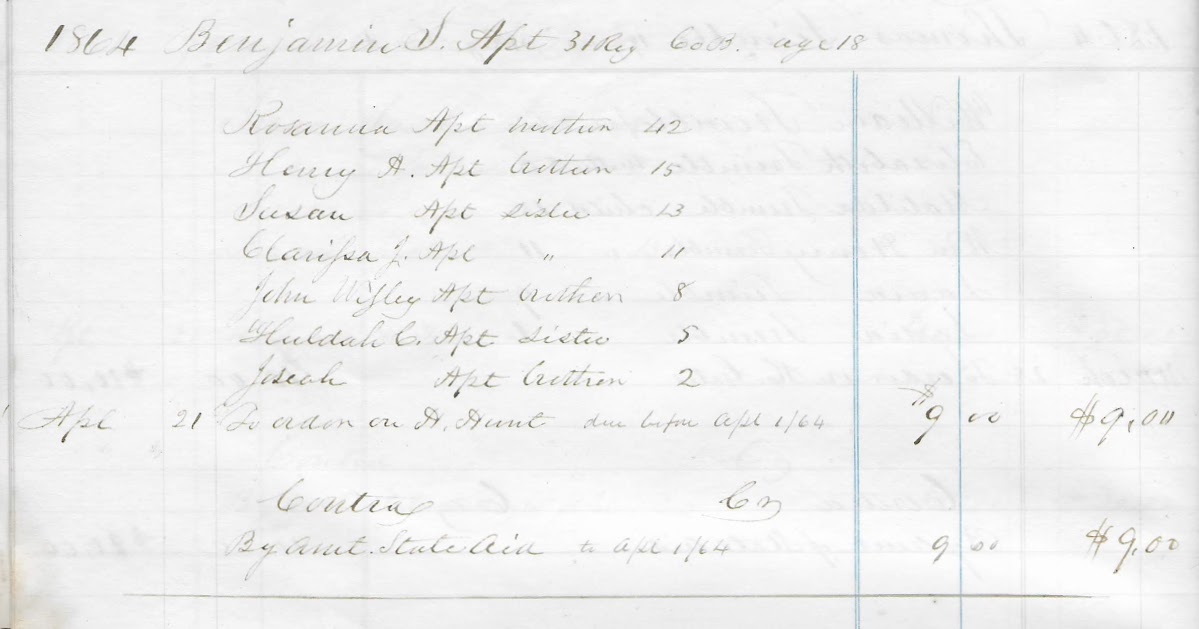 1864 Benjamin S. Apt 31 Reg Co B. age 18
Rosanna Apt mother 42
Henry A. Apt brother 15
Susan Apt sister 13
Clarissa J. Apt " 11
John Wesley Apt brother 8
Huldah C. Apt sister 5
Josiah Apt brother 2
Apl 21 To order on H. Hunt due before Apl 1/64 $9 00 $9,00
Contra Cr
By Amt. State Aid to Apl 1/64 9 00 $9,00